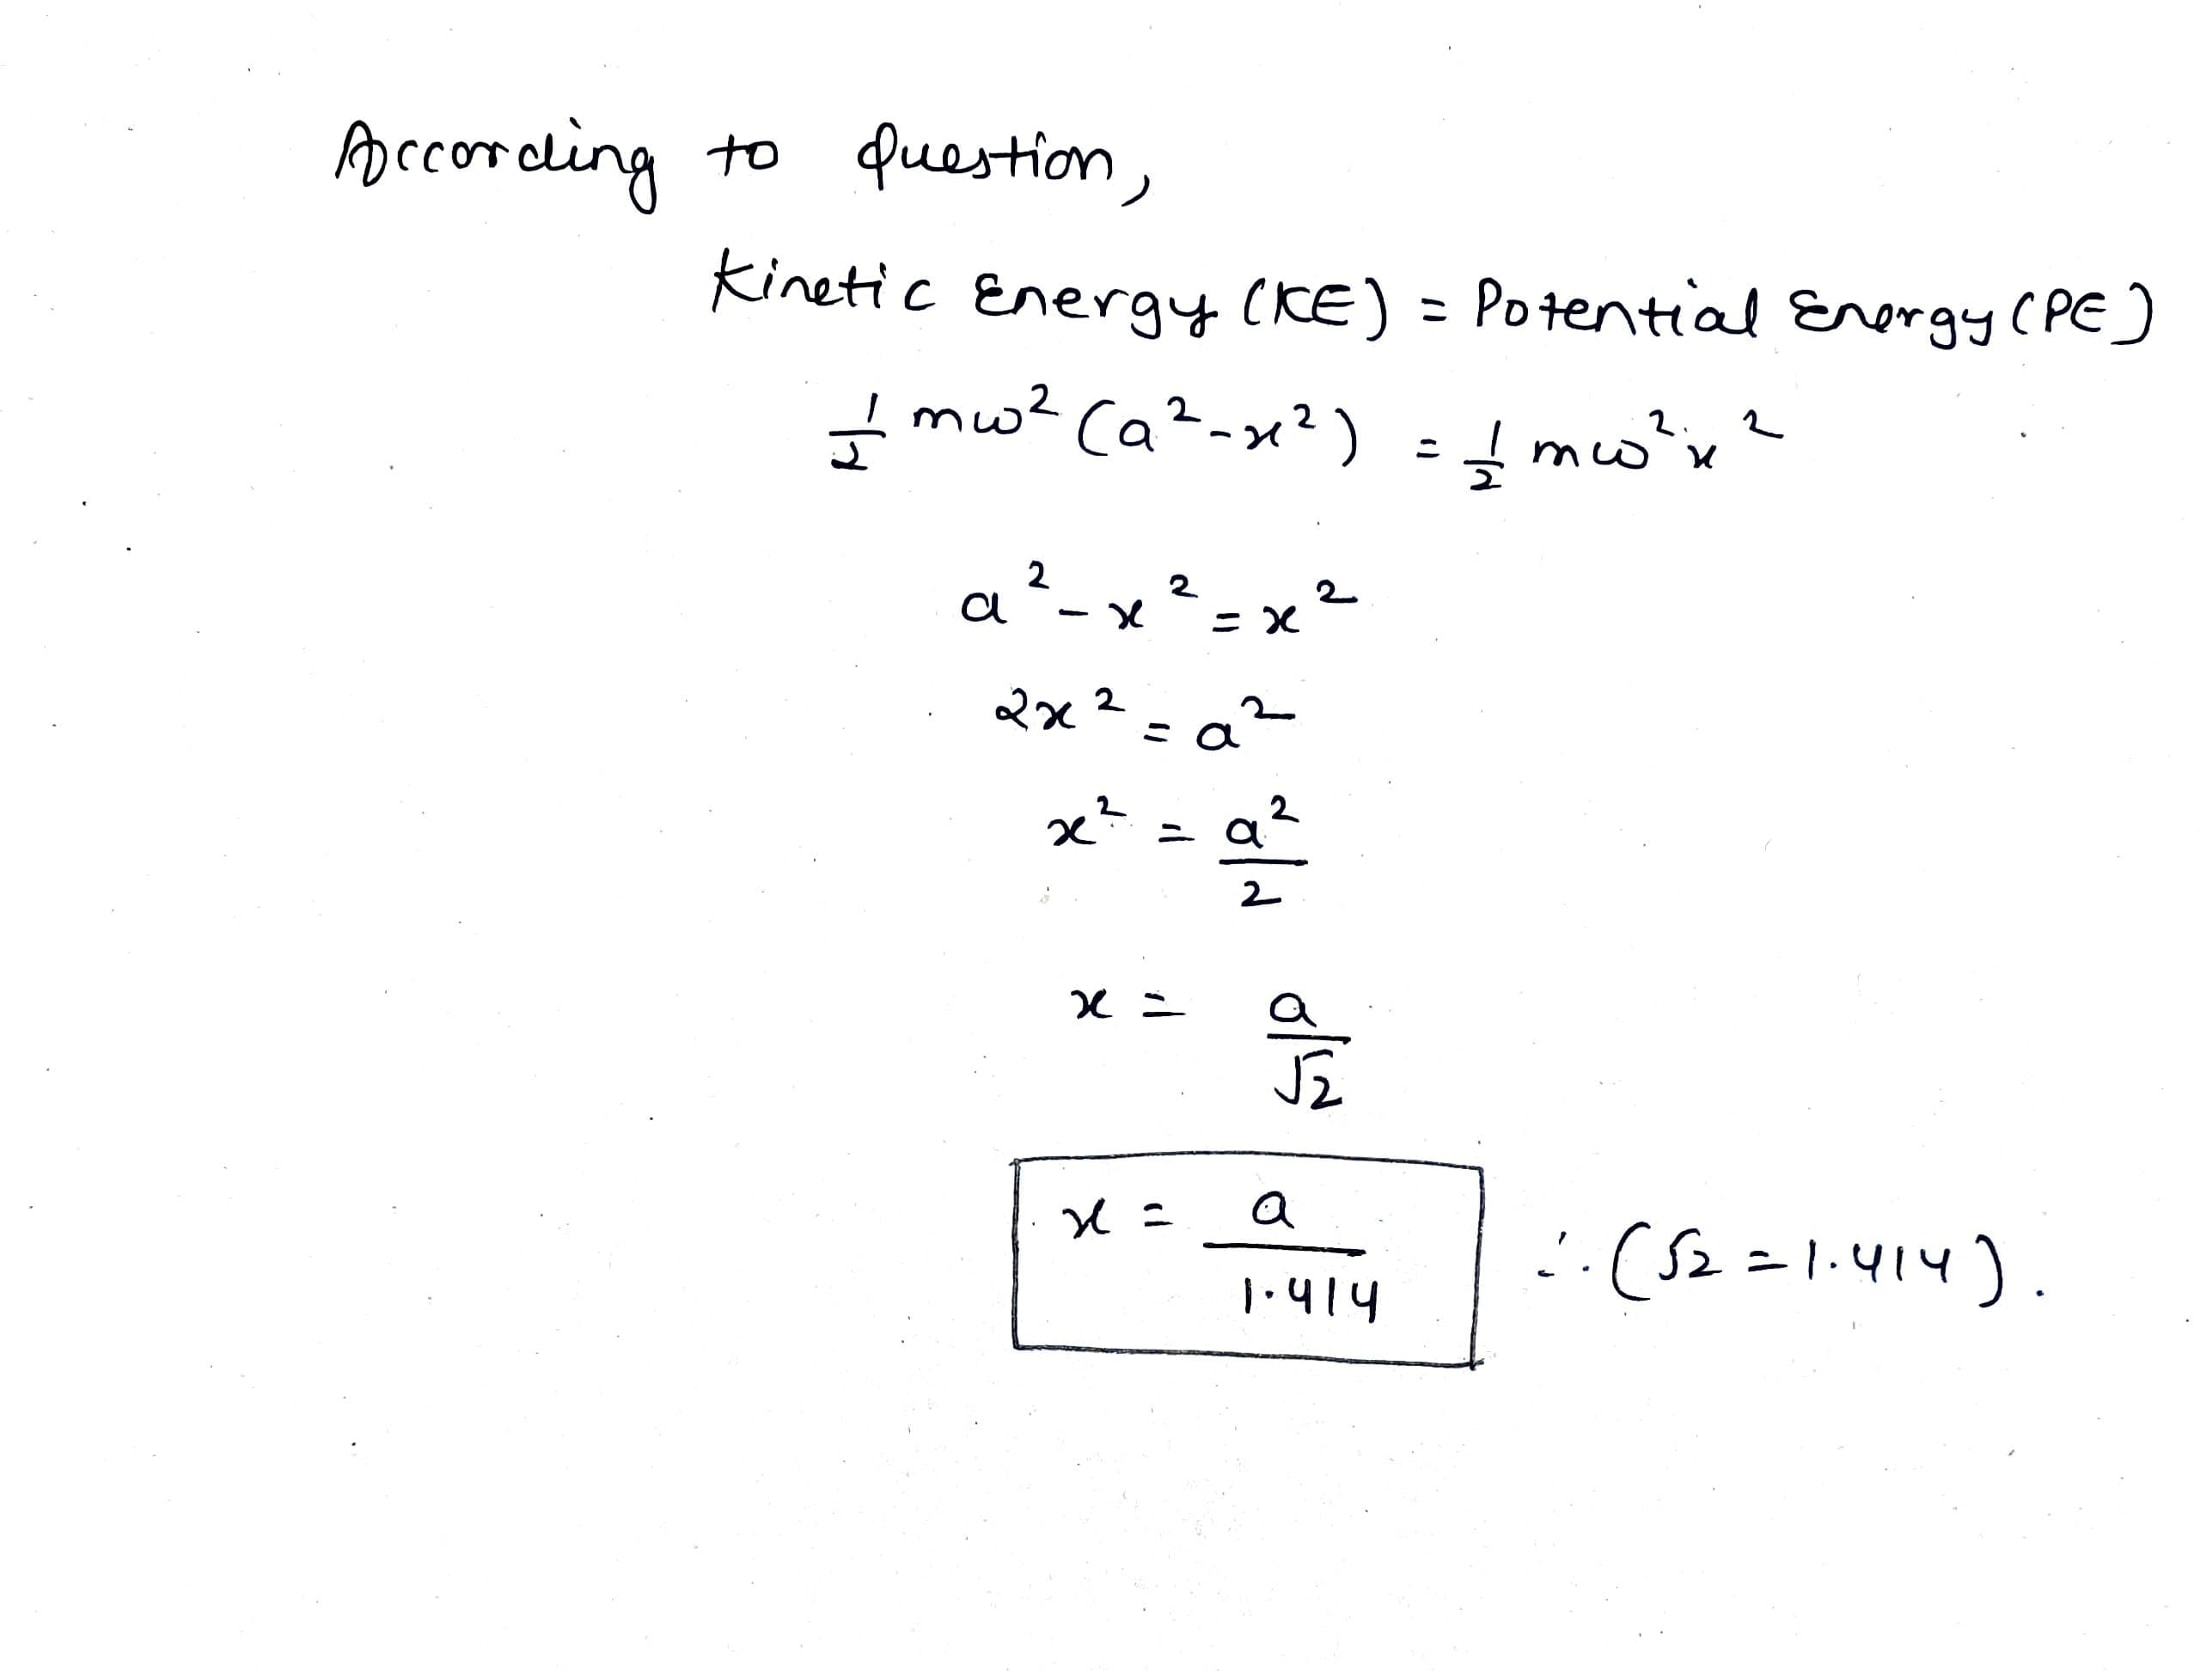 According to Question,
Kinetic Energy (KE) = Potential Energy (PE)
1/2 mω² (a² - x²) = 1/2 mω² x²
a² - x² = x²
2x² = a²
x² = a²/2
x = a/√2
x = a/1.414 ∴ (√2 = 1.414).